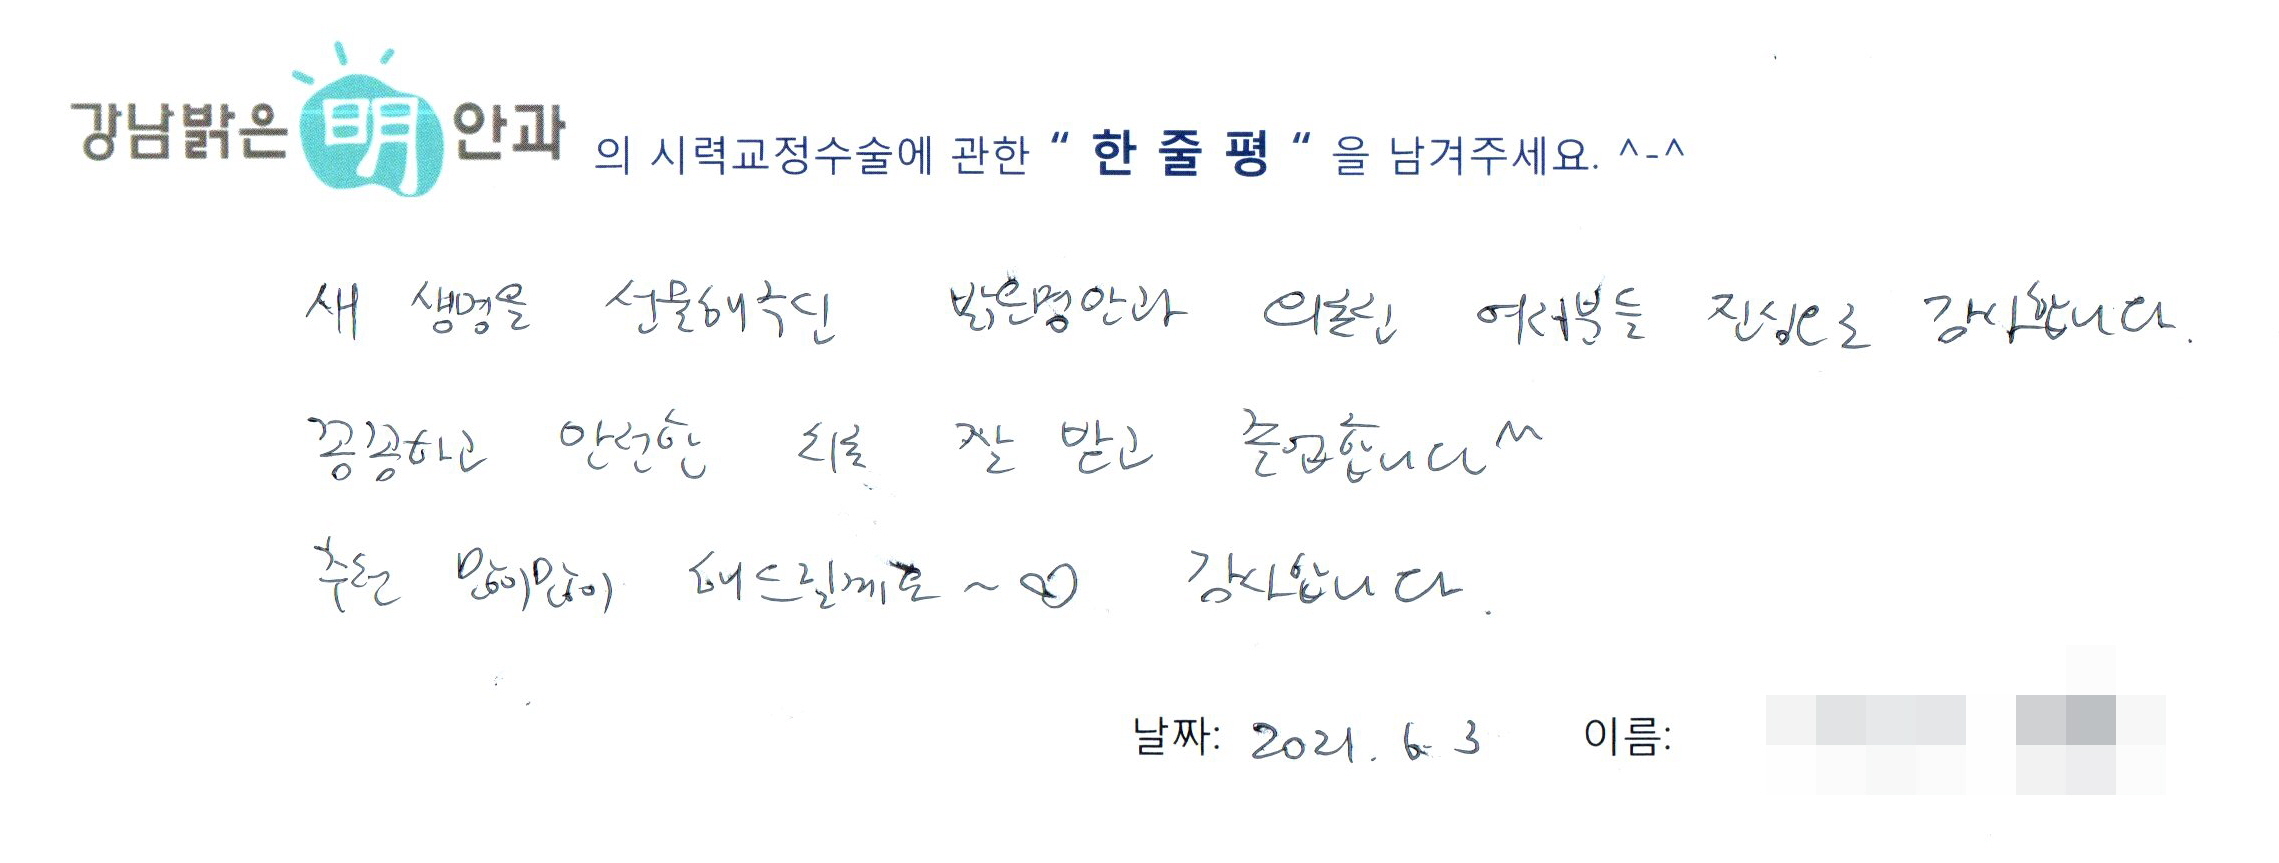 강남밝은明안과 의 시력교정수술에 관한 “ 한 줄 평 “ 을 남겨주세요. ^-^
새 생명을 선물해주신 밝은명안과 의료진 여러분들 진심으로 감사합니다.
꼼꼼하고 안전한 치료 잘 받고 졸업합니다^^
추천 많이많이 해드릴께요~♡ 감사합니다.
날짜: 2021. 6. 3 이름: